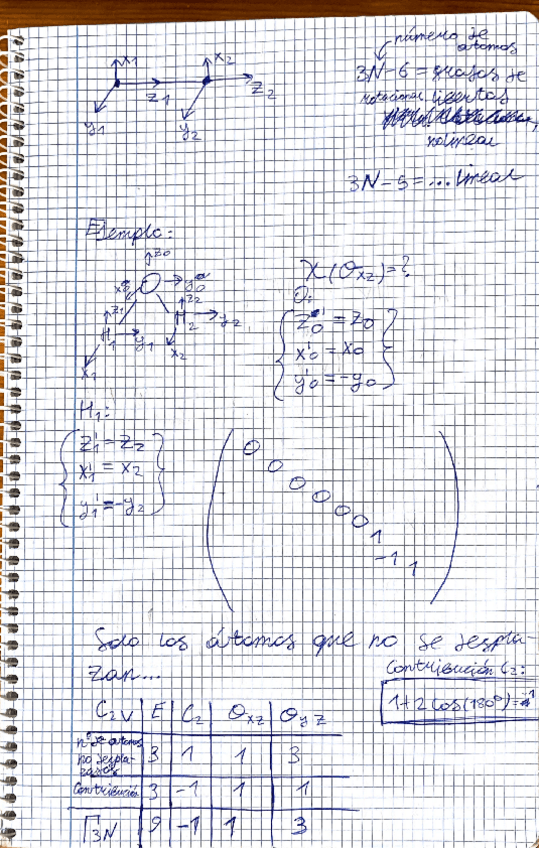 x1 x2
z1 z2
y1 y2
número de
átomos
3N-6 = grados de
libertos
nolineal
3N-5 = ... lineal
Ejemplo:
z0
x0 O y0
z1 z2
H1 y1 H2 y2
x1 x2
χ(σxz) = ?
O:
z'0 = z0
x'0 = x0
y'0 = -y0
H1:
z'1 = z2
x'1 = x2
y'1 = -y2
0
0
0
0
0
0
1
-1
1
Solo los átomos que no se despla-
zan...
Contribución C2:
1 + 2 cos(180°) = -1
C2V E C2 σxz σyz
nº de átomos
no despla-
zados 3 1 1 3
Contribución 3 -1 1 1
Γ3N 9 -1 1 3